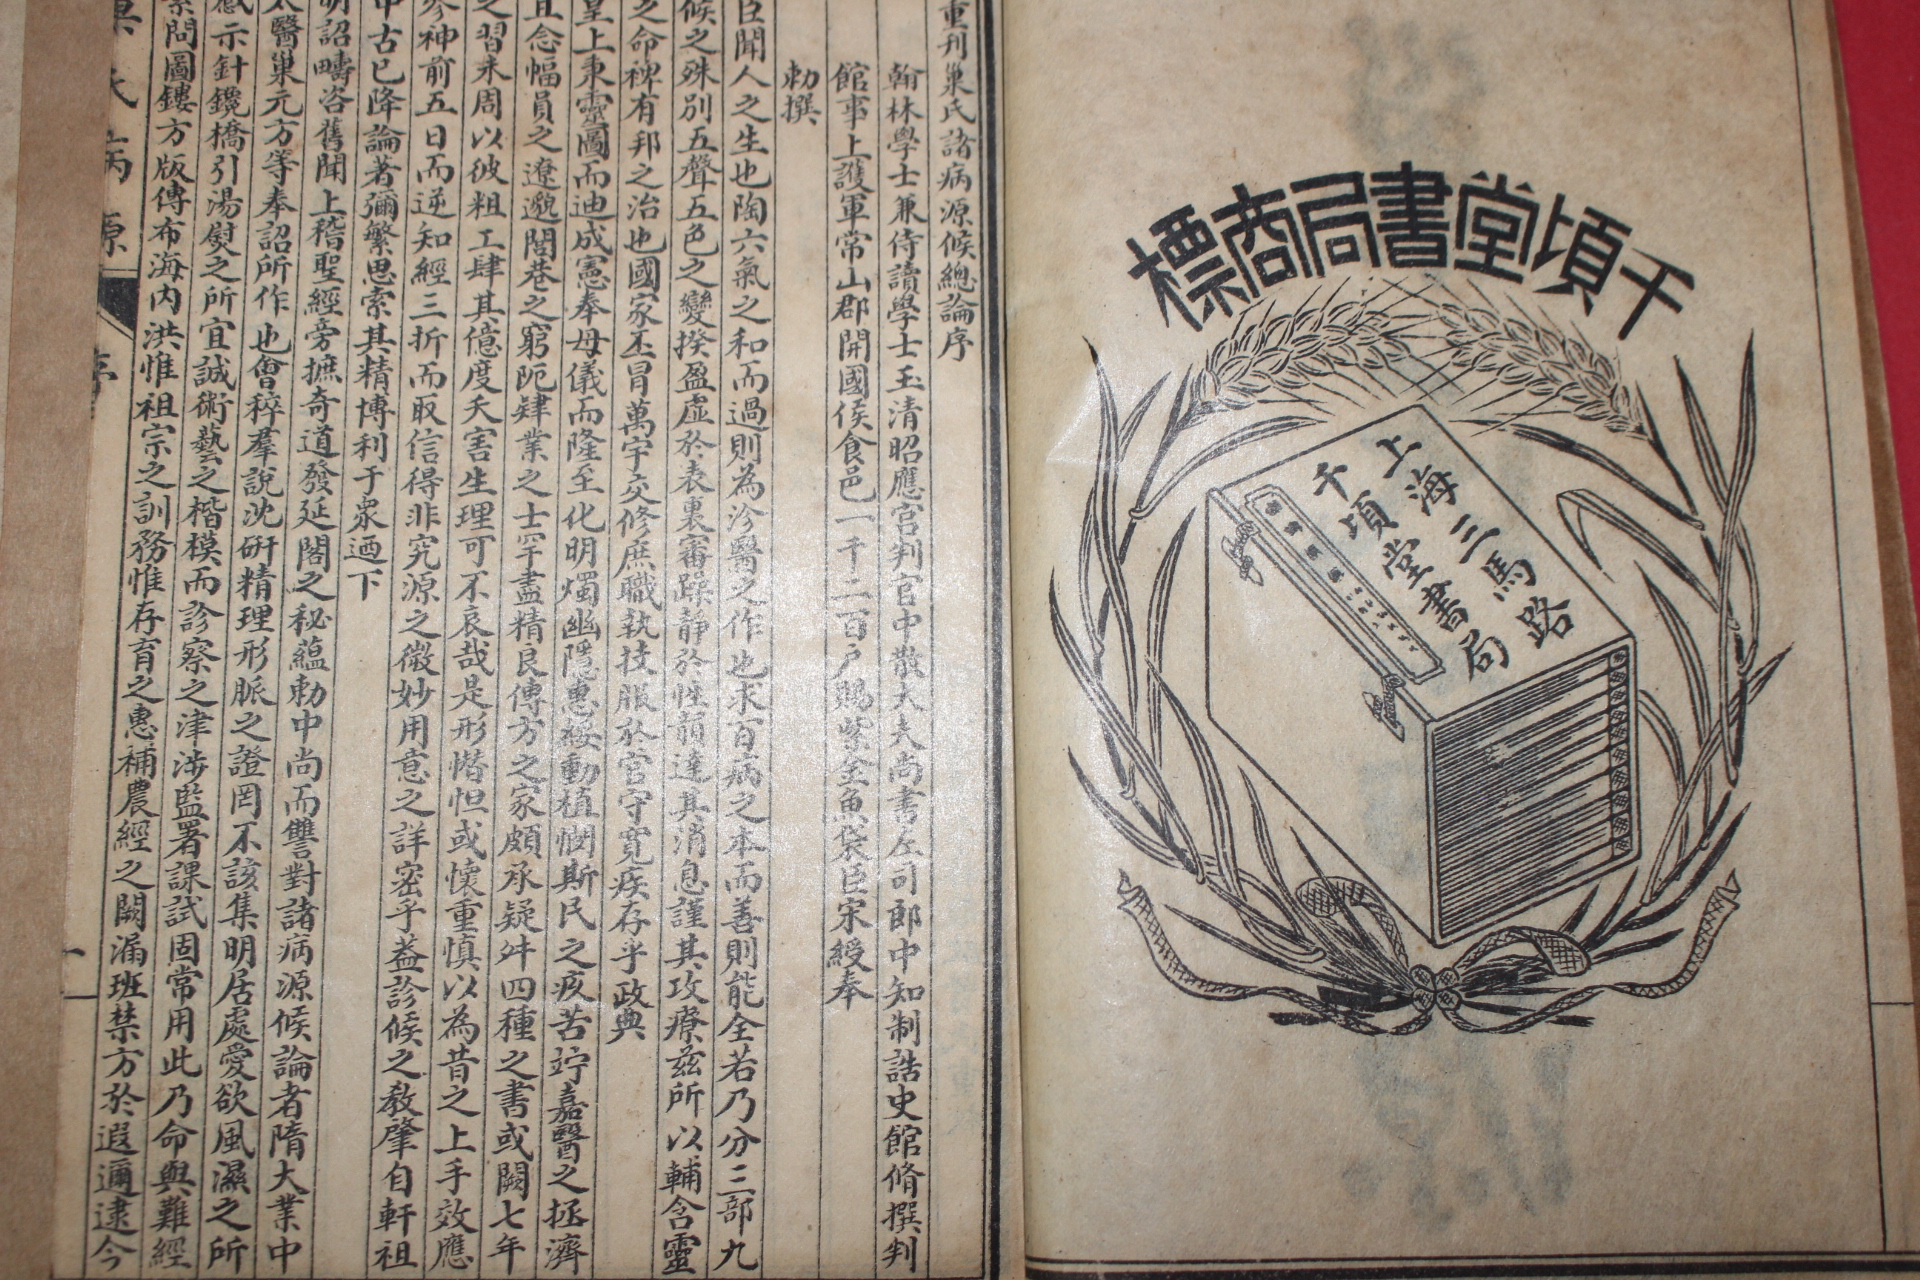 千頃堂書局商標
上海三馬路
千頃堂書局
重刊巢氏諸病源候總論序
翰林學士兼侍讀學士玉清昭應宮判官中散大夫尚書左司郎中知制誥史館脩撰判
館事上護軍常山郡開國侯食邑一千二百户賜紫金魚袋臣宋綬奉
勅撰
臣聞人之生也陶六氣之和而過則為沴醫之作也求百病之本而善則能全若乃分三部九
候之殊別五聲五色之變揆盈虛於表裏審躁靜於性韻達其消息謹其攻療茲所以輔含靈
之命裨有邦之治也國家丕冒萬宇交修庶職執技服於官守寬疾存乎政典
皇上秉靈圖而迪成憲奉母儀而隆至化明燭幽隱惠綏動植憫斯民之疾苦竚嘉醫之拯濟
且念幅員之遼邈閭巷之窮阨肄業之士罕盡精良傳方之家頗承疑舛四種之書或闕七年
之習未周以彼粗工肆其億度夭害生理可不哀哉是形憯怛或懷重慎以為昔之上手效應
參神前五日而逆知經三折而取信得非究源之微妙用意之詳密乎蓋診候之教肇自軒祖
中古已降論著彌繁思索其精博利于眾迺下
明詔疇咨舊聞上稽聖經旁摭奇道發延閣之秘蘊勅中尚而讐對諸病源候論者隋大業中
太醫巢元方等奉詔所作也會稡羣說沈研精理形脈之證罔不該集明居處愛欲風濕之所
感示針鑱橋引湯熨之所宜誠術藝之楷模而診察之津涉監署課試固常用此乃命與難經
素問圖鏤方版傳布海內洪惟祖宗之訓務惟存育之惠補農經之闕漏班禁方於遐邇逮今
巢氏病源 序 一